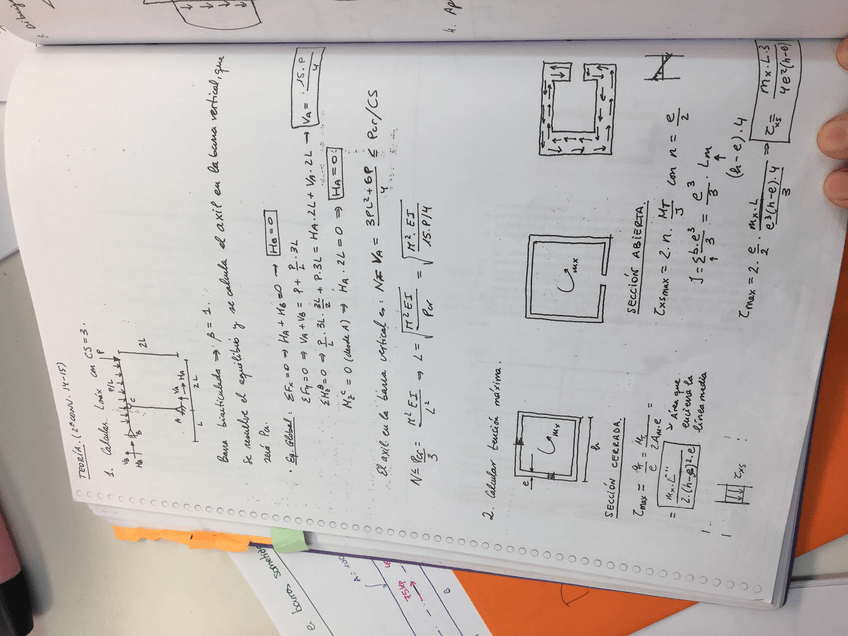 TEORÍA. (2ª CONV. 14-15)
1. Calcular Lmáx con CS=3.
P/L
P
HB
VB
B
C
2L
A
VA
HA
L
2L
Barra biarticulada → β = 1.
Se resuelve el equilibrio y se calcula el axil en la barra vertical, que
será Pcr.
• Eq. Global: ΣFx=0 → HA + HB=0 → HB=0
ΣFy=0 → VA + VB = P + P/L · 3L
ΣMzB=0 → P/L · 3L · 3L/2 + P·3L = HA·2L + VA·2L → VA = 15·P/4
MzC = 0 (desde A) → HA·2L = 0 → HA=0
El axil en la barra vertical es: N = VA = ≤ Pcr/CS
N = Pcr/3 = π²EI/L² → L = √(π²EI/Pcr) = √(π²EI/15·P/4)
2. Calcular tensión máxima.
e
Mx
h
Mx
SECCIÓN CERRADA.
τmax = q/e = /2Am·e =
= /2·(h-e)²·e
Área que
encierra la
línea media
τxs
SECCIÓN ABIERTA
τxsmax = 2·n·MT/J con n = e/2
J = Σb·e³/3 = e³/3 · Lm
(h-e)·4
τmax = 2 · e/2 · Mx·L/(e³(h-e)·4/3) ⇒ τxs = Mx·L·3/4e²(h-e)
4. Ap
barras